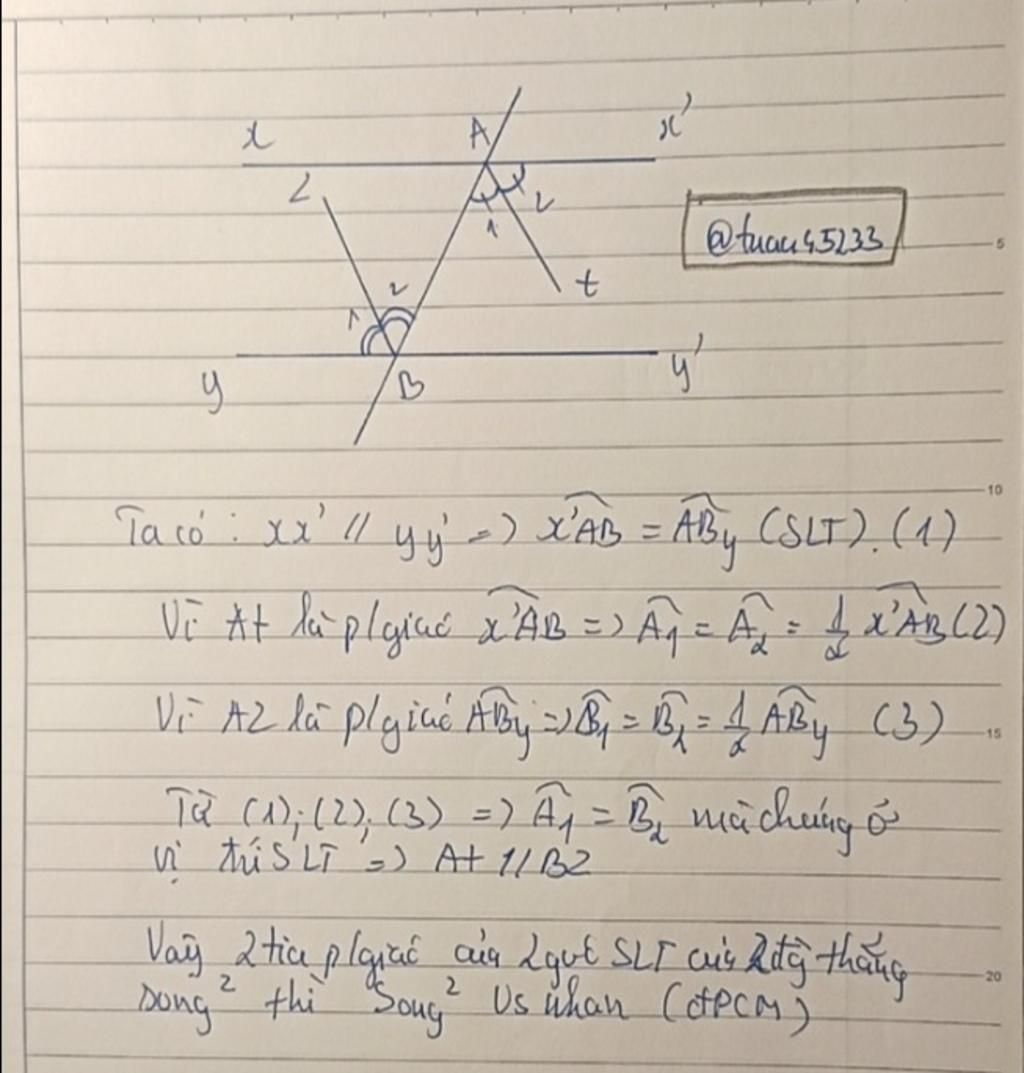 x
A
x'
z
1
2
@tuan45233
t
1
2
y
B
y'
5
10
Ta có : xx' // yy' => x'AB = ABy (SLT). (1)
Vì At là p/giác x'AB => A1 = A2 = 1/2 x'AB (2)
15
Vì Az là p/giác ABy => B1 = B2 = 1/2 ABy (3)
Từ (1); (2); (3) => A1 = B2 mà chúng ở
vị trí SLT => At // Bz
20
Vậy 2 tia p/giác của 2 góc SLT của 2 đg thẳng
song² thì song² vs nhau (đPCM)